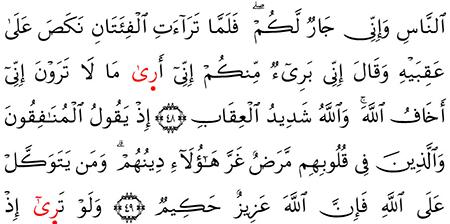 ٱلنَّاسِ وَإِنِّى جَارٌ لَّكُمْ ۖ فَلَمَّا تَرَآءَتِ ٱلْفِئَتَانِ نَكَصَ عَلَىٰ
عَقِبَيْهِ وَقَالَ إِنِّى بَرِىٓءٌ مِّنكُمْ إِنِّىٓ أَرِىٰ مَا لَا تَرَوْنَ إِنِّىٓ
أَخَافُ ٱللَّهَ ۚ وَٱللَّهُ شَدِيدُ ٱلْعِقَابِ ﴿٤٨﴾ إِذْ يَقُولُ ٱلْمُنَـٰفِقُونَ
وَٱلَّذِينَ فِى قُلُوبِهِم مَّرَضٌ غَرَّ هَـٰٓؤُلَآءِ دِينُهُمْ ۗ وَمَن يَتَوَكَّلْ
عَلَى ٱللَّهِ فَإِنَّ ٱللَّهَ عَزِيزٌ حَكِيمٌ ﴿٤٩﴾ وَلَوْ تَرِىٰٓ إِذْ